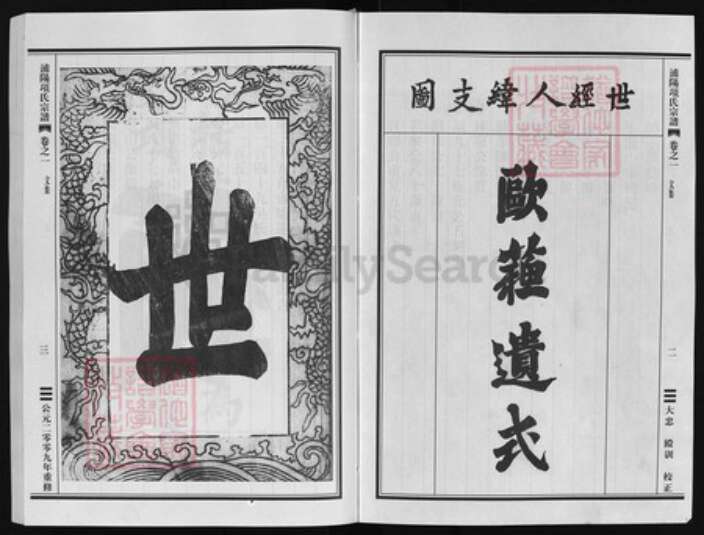 浦陽項氏宗譜 卷之一 文集
二
大忠 鎗訓 校正
世經人緯支圖
歐蘓遺式
世
浦陽項氏宗譜 卷之一 文集
三
公元二零零九年重修
FamilySearch